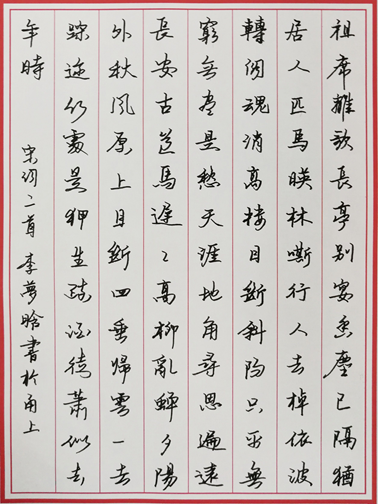 祖席離歌長亭別宴香塵已隔猶
居人匹馬暎林嘶行人去棹依波
轉閣魂消高樓目斷斜陽只平無
窮無盡是愁天涯地角尋思遍遠
長安古道馬遲〻高柳亂蟬夕陽
外秋風原上目斷四垂歸雲一去
踪迹何處是狎生疏酒徒蕭似少
年時 宋詞二首 李夢晗書於甬上